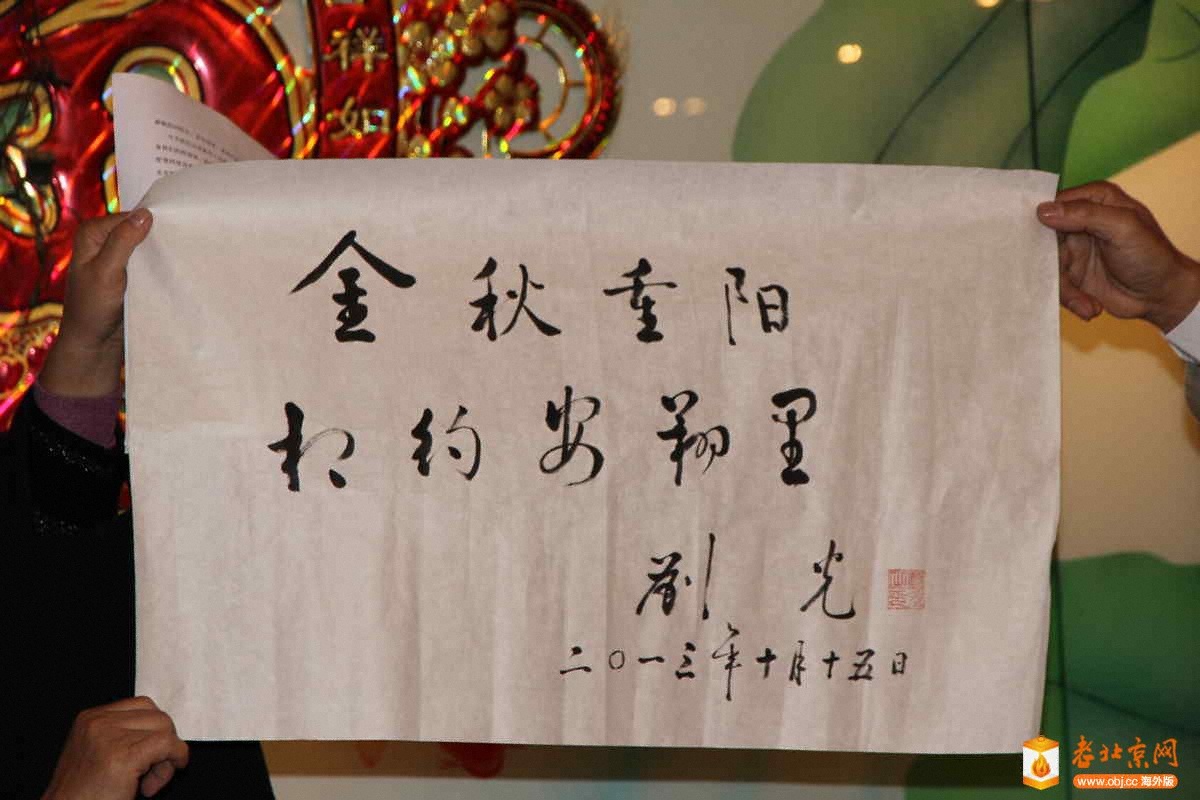 祥
如
金秋重阳
相约安翔里
劉光
二〇一三年十月十五日
老北京网
www.obj.cc 海外版